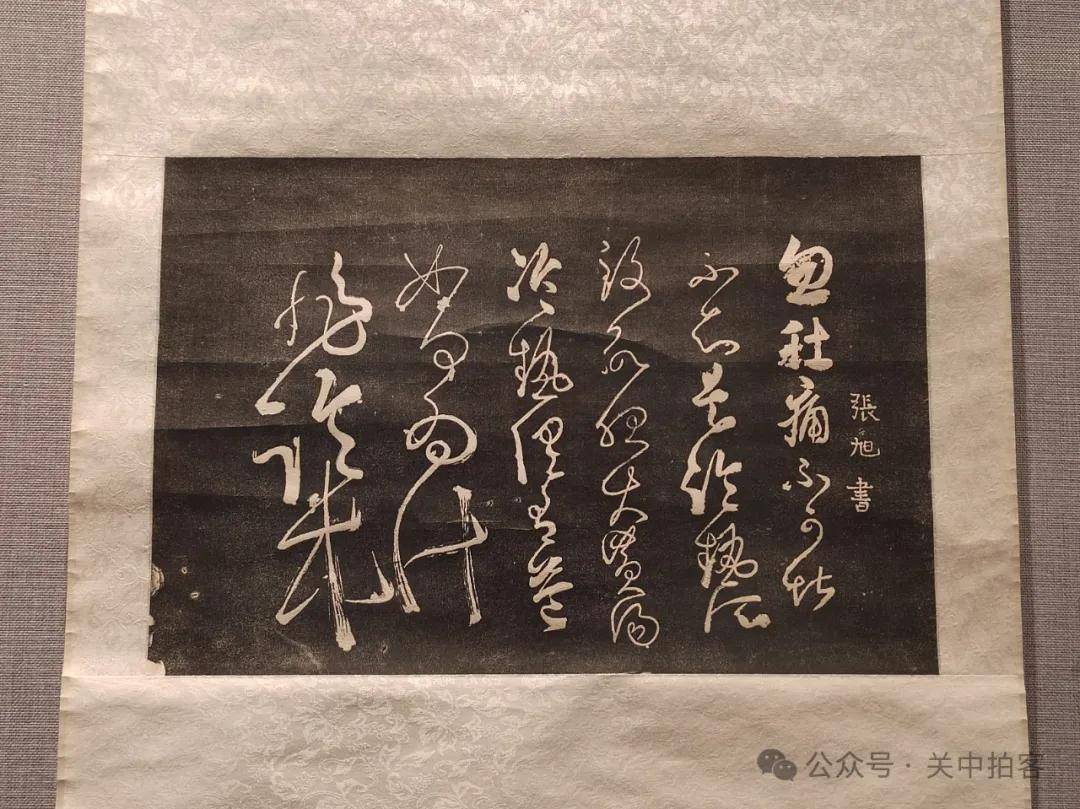 張旭書
忽肚痛不可堪
不知是冷熱所
致欲服大黃湯
冷熱俱有益
如何為計
非臨床
公众号 · 关中拍客